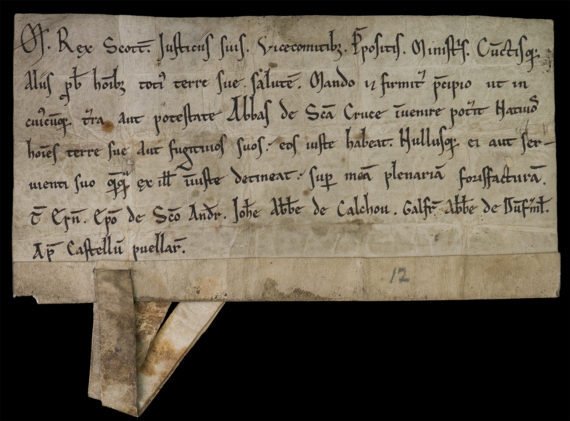 M. Rex Scott̄. Justiciis suis. Vicecomitibȝ. P̄positis. Ministris. Cūctisqȝ.
Aliis pb̄ hōibȝ toti᷒ terre sue salutē. Mando ⁊ firmit᷑ p̄cipio ut in
cui᷒cūqȝ t᷑ra aut potestate Abbas de Sc̄a Cruce īvenire pot᷑it Nativos
hoīes terre sue aut fugitivos suos. eos iuste habeat. Nullusqȝ ei aut ser-
vienti suo ex ill᷑ iniuste detineat. sup̄ meā plenariam forisfacturam.
T̄ Ern̄. Ep̄o de Sc̄o Andr̄. Joh̄e Abb̄e de Calchou. Galfr̄ Abb̄e de Dūf̄ml̄.
Ap̄ Castellū puellar̄.
12